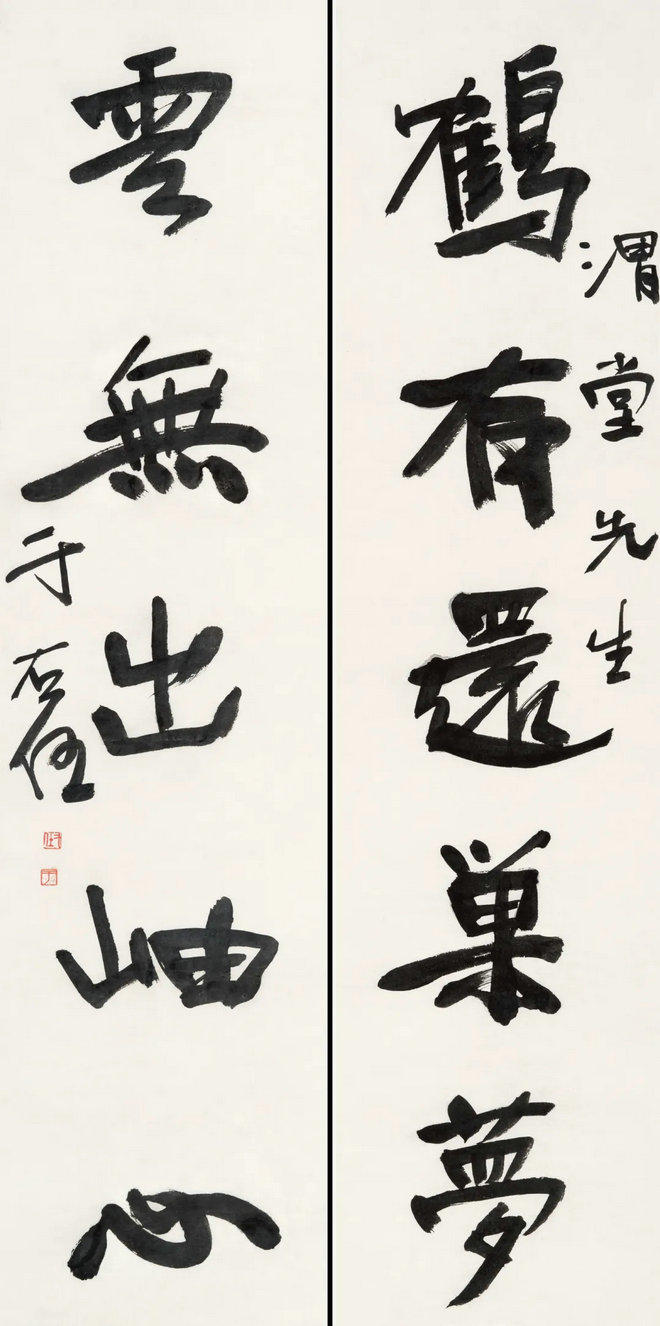 渭堂先生
鶴有還巢夢
雲無出岫心
于右任